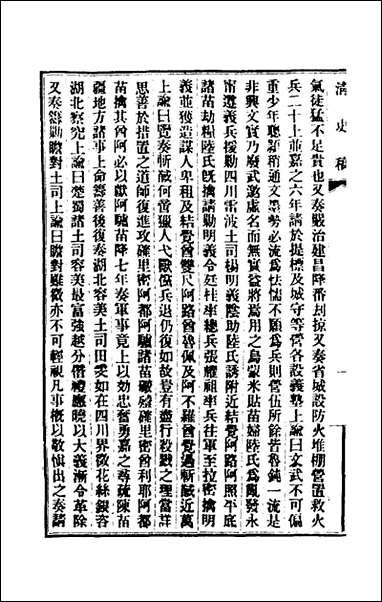 清史稿
氣徒猛不足貴也又奏嚴治建昌降番刦掠又奏省城設防火堆棚營置救火
兵二十上並嘉之六年請於提標及城守等營各設義塾上諭曰文武不可偏
重少年聰穎稍通文墨勢必流爲怯懦不願爲兵則營伍所餘皆魯鈍一流是
非興文實乃廢武邀虛名而無實益將焉用之烏蒙米貼苗婦陸氏爲亂發永
甯遵義兵援勦四川雷波土司楊明義陰助陸氏誘附近結覺阿路阿照平底
諸苗劫糧陸氏旣擒請勦明義令廷桂率總兵張耀祖率兵往軍至拉密擒明
義並獲造謀人卑租及結覺酋雙尺阿路酋魯佩及阿不羅酋覺過斬馘近萬
上諭曰覽奏斬馘何啻獵人弋獸俟兵退仍復如故豈有盡行殺戮之理當詳
思善於措置之道師復進攻磉里密阿都阿驢諸苗破磉里密酋利耶阿都
苗擒其酋阿必以獻阿驢苗降七年奏軍事竟上以効忠奮勇嘉之尋疏陳苗
疆地方諸事上命籌善後復奏湖北容美土司田旻如在四川界徵花絲銀咨
湖北察究上諭曰楚蜀諸土司容美最富強越分僭禮應曉以大義漸令革除
又奏籌勦瞻對土司上諭曰瞻對雖微亦不可輕視凡事概以敬愼出之奏請